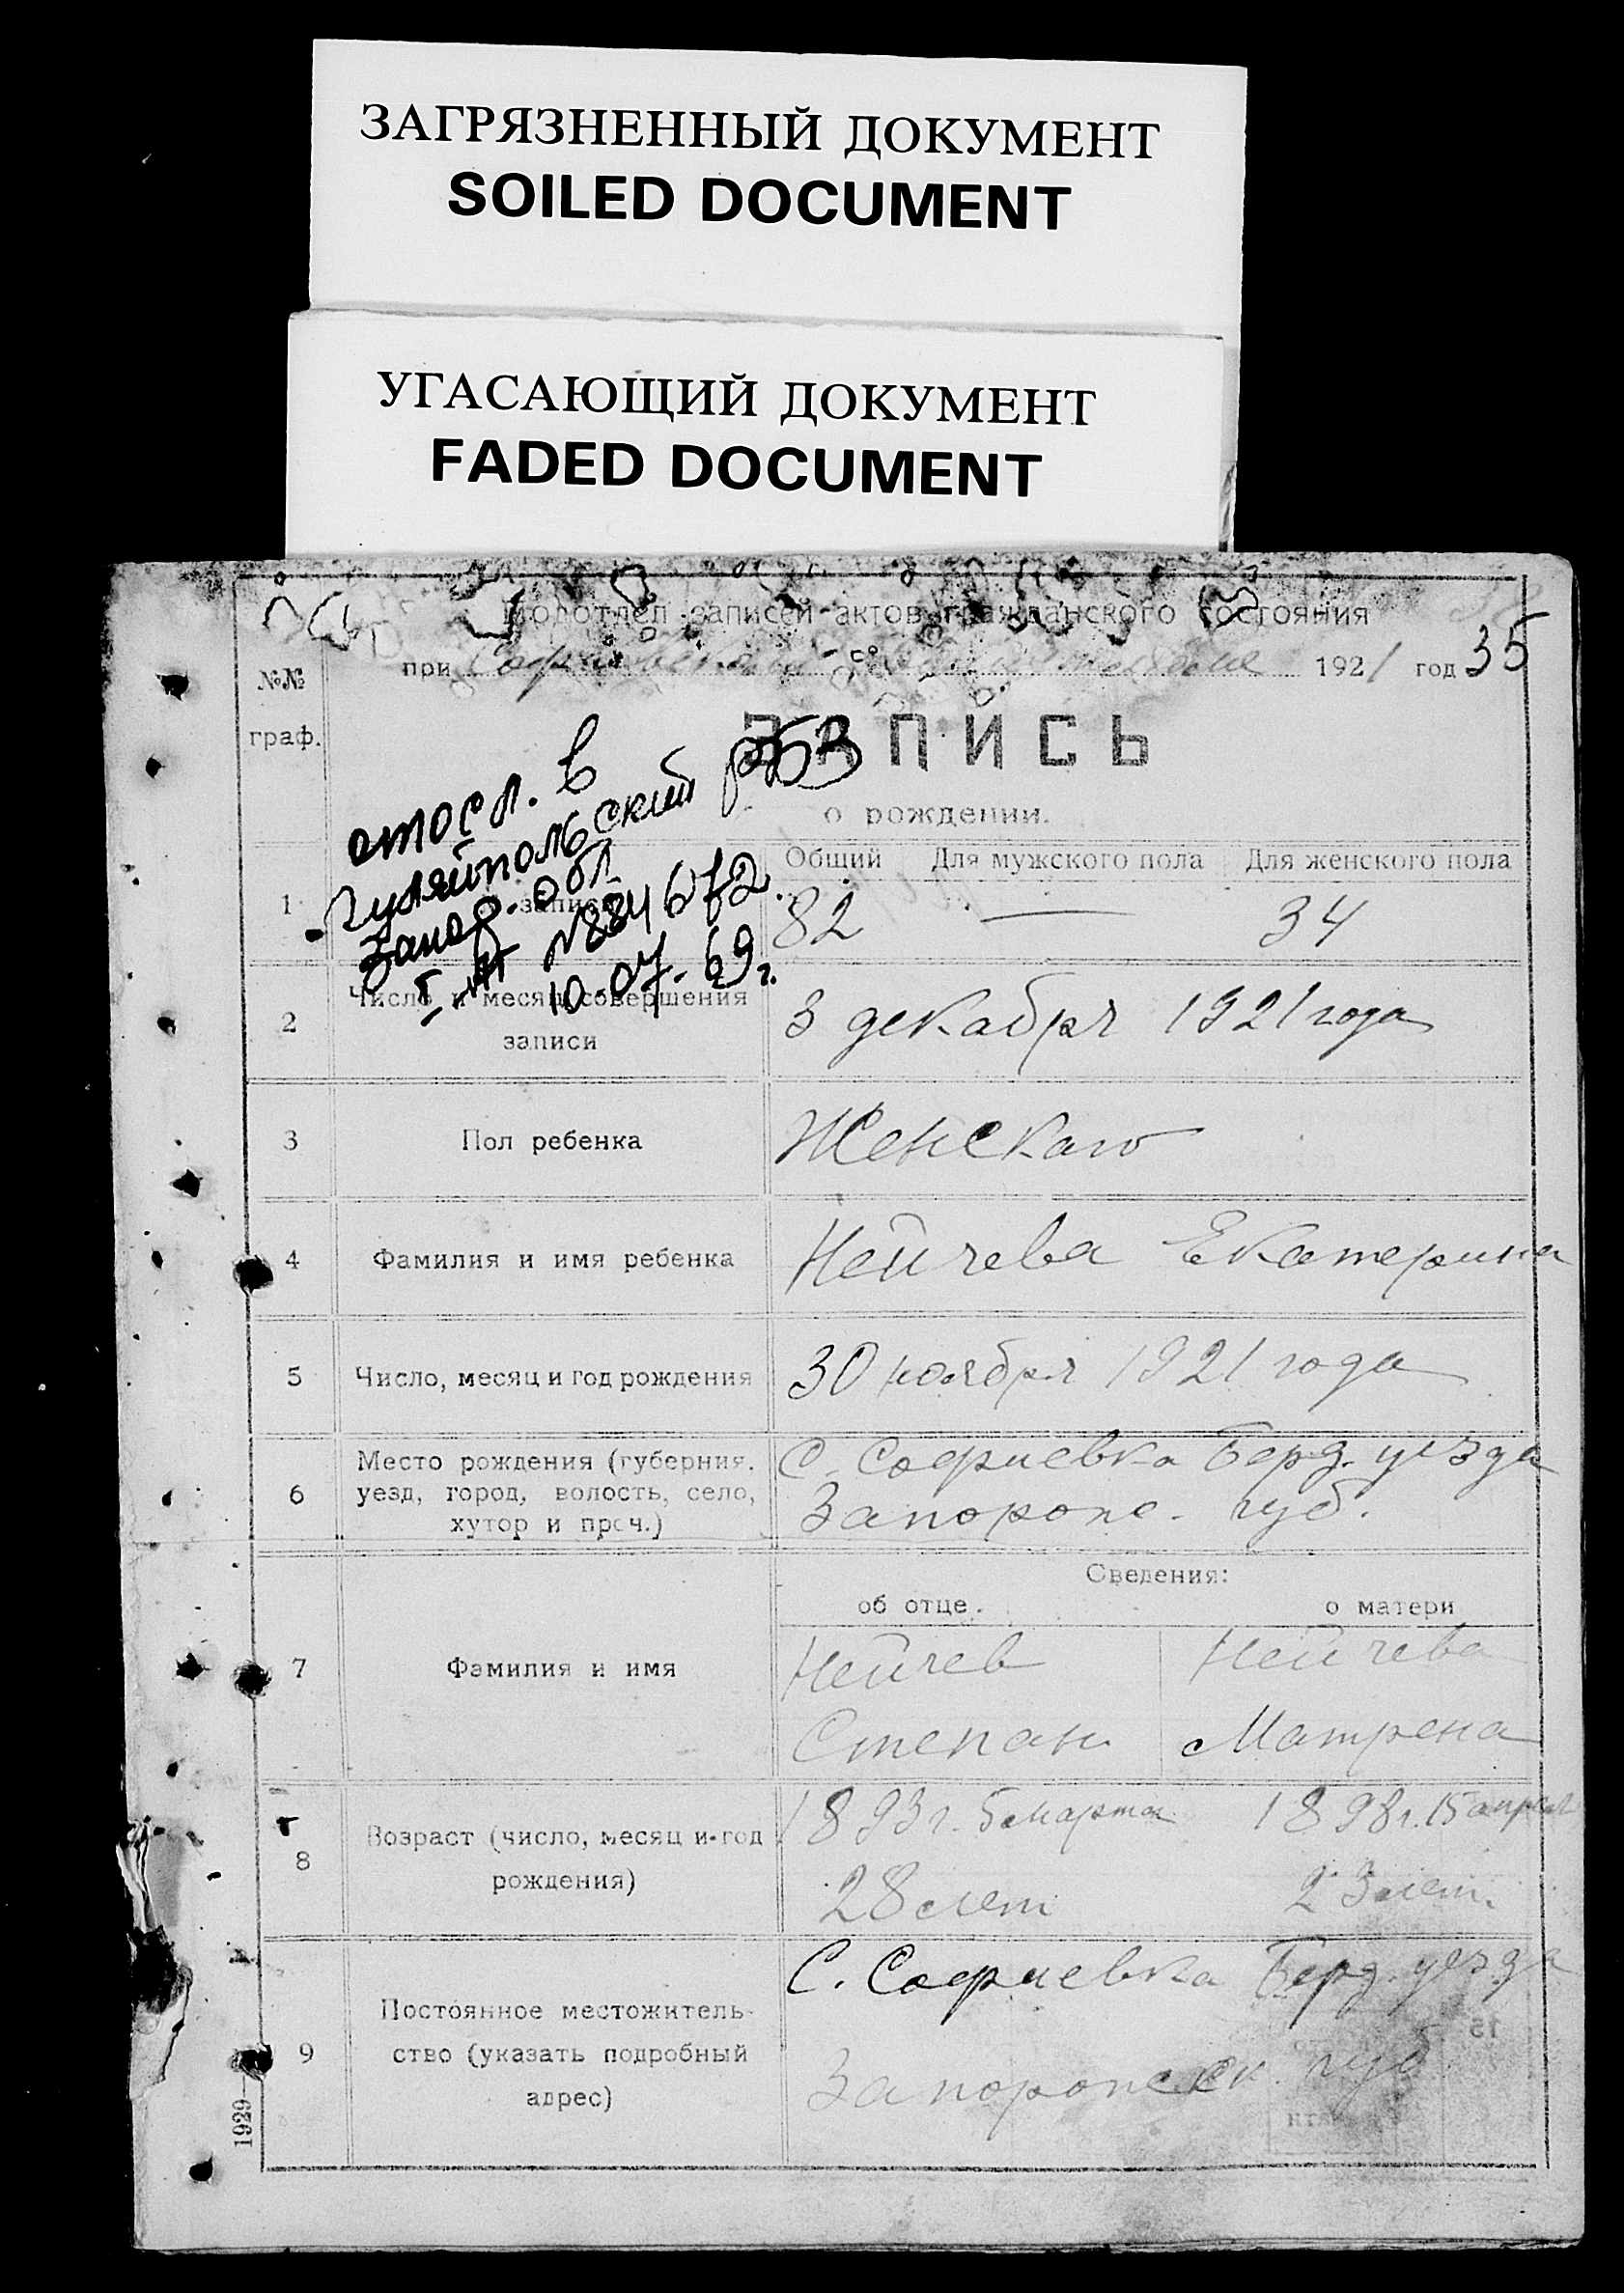 ЗАГРЯЗНЕННЫЙ ДОКУМЕНТ
SOILED DOCUMENT
УГАСАЮЩИЙ ДОКУМЕНТ
FADED DOCUMENT
записей актов гражданского состояния
при 1921 год 35
№№
граф.
ЗАПИСЬ
о рождении.
отосл. в
Гуляйпольский РБЗ
Запор. обл
№ 884672
10-04-69г.
Общий Для мужского пола Для женского пола
1 82 — 34
2 Число и месяц совершения
записи
3 декабря 1921 года
3 Пол ребенка Женскаго
4 Фамилия и имя ребенка Нейчева Екатерина
5 Число, месяц и год рождения 30 ноября 1921 года
6 Место рождения (губерния,
уезд, город, волость, село,
хутор и проч.)
С. Софиевка Берд. уезда
Запорож. губ.
Сведения:
об отце. о матери
7 Фамилия и имя
Нейчев Нейчева
Степан Матрена
8 Возраст (число, месяц и год
рождения)
1893г. 5 марта 1898г. 15 апреля
28 лет 23 лет.
9 Постоянное местожитель-
ство (указать подробный
адрес)
С. Софиевка Берд. уезда
губ
1929